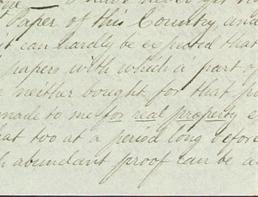 Paper of this Country, and
it can hardly be expected that
papers with which a part of
neither bought for that
made to me for real property
that too at a period long before
abundant proof can be